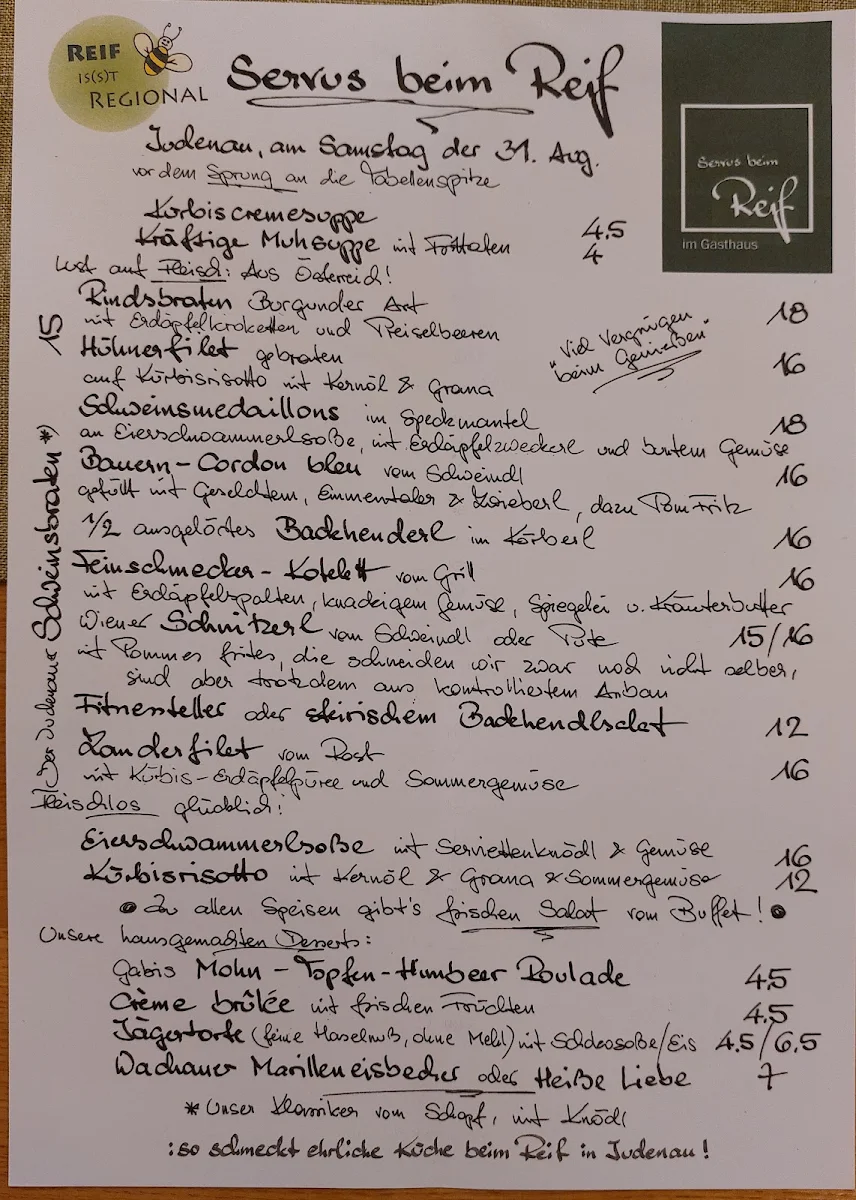 REIF
IS(S)T
REGIONAL
Servus beim Reif
Servus beim
Reif
im Gasthaus
Judenau, am Samstag der 31. Aug.
vor dem Sprung an die Tabellenspitze
Kürbiscremesuppe 4,5
Kräftige Muhsuppe mit Frittaten 4
Lust auf Fleisch: Aus Österreich!
Rindsbraten Burgunder Art 18
mit Erdäpfelkroketten und Preiselbeeren
"Viel Vergnügen
beim Genießen"
Hühnerfilet gebraten 16
auf Kürbisrisotto mit Kernöl & Grana
Schweinsmedaillons im Speckmantel 18
an Eierschwammerlsoße, mit Erdäpfelzweckerl und buntem Gemüse
Bauern-Cordon bleu vom Schweindl 16
gefüllt mit Geselchtem, Emmentaler & Zwieberl, dazu Pom Fritz
1/2 ausgelöstes Backhenderl im Körberl 16
Feinschmecker-Kotelett vom Grill 16
mit Erdäpfelspalten, knackigem Gemüse, Spiegelei u. Kräuterbutter
Wiener Schnitzerl vom Schweindl oder Pute 15/16
mit Pommes frites, die schneiden wir zwar noch nicht selber,
sind aber trotzdem aus kontrolliertem Anbau
Fitnessteller oder steirischem Backhendlsalat 12
Zanderfilet vom Rost 16
mit Kürbis-Erdäpfelpüree und Sommergemüse
Der Judenauer Schweinsbraten *) 15
Fleischlos glücklich!
Eierschwammerlsoße mit Serviettenknödl & Gemüse 16
Kürbisrisotto mit Kernöl & Grana & Sommergemüse 12
Zu allen Speisen gibt's frischen Salat vom Buffet!
Unsere hausgemachten Desserts:
Gabis Mohn-Topfen-Himbeer Roulade 4,5
Crème brûlée mit frischen Früchten 4,5
Jägertorte (feine Haselnuß, ohne Mehl) mit Schokosoße/Eis 4,5/6,5
Wachauer Marilleneisbecher oder Heiße Liebe 7
* Unser Klassiker vom Schopf, mit Knödl
:so schmeckt ehrliche Küche beim Reif in Judenau!